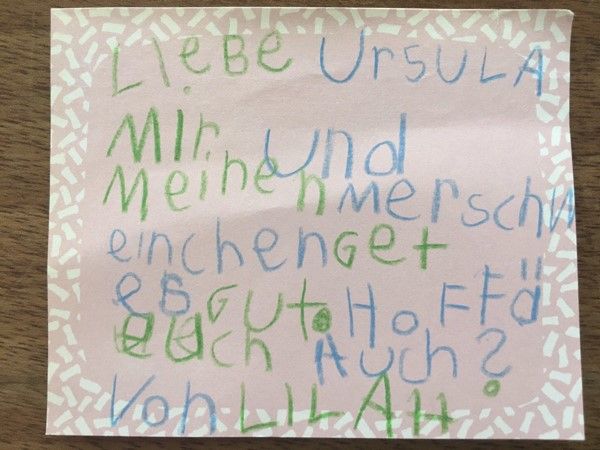 LIEBE URSULA
MIR und
Meinen merschw
einchen Get
es GUt. HoFFä
euch AUch?
Von LILAH.